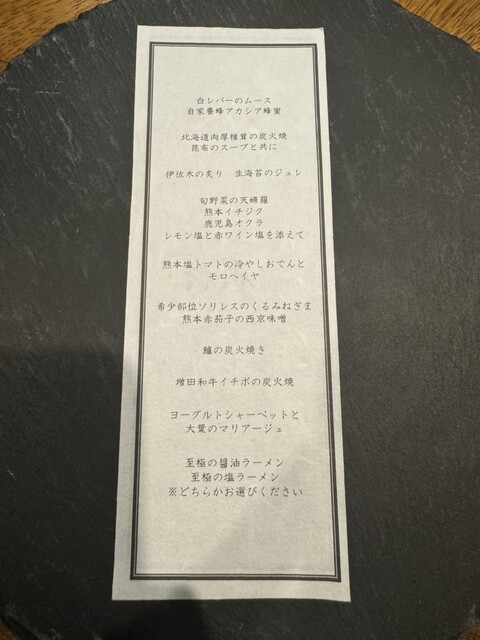 白レバーのムース
自家養蜂アカシア蜂蜜
北海道肉厚椎茸の炭火焼
昆布のスープと共に
伊佐木の炙り　生海苔のジュレ
旬野菜の天婦羅
熊本イチジク
鹿児島オクラ
レモン塩と赤ワイン塩を添えて
熊本塩トマトの冷やしおでんと
モロヘイヤ
希少部位ソリレスのくるみねぎま
熊本赤茄子の西京味噌
鱸の炭火焼き
増田和牛イチボの炭火焼
ヨーグルトシャーベットと
大葉のマリアージュ
至極の醤油ラーメン
至極の塩ラーメン
※どちらかお選びください